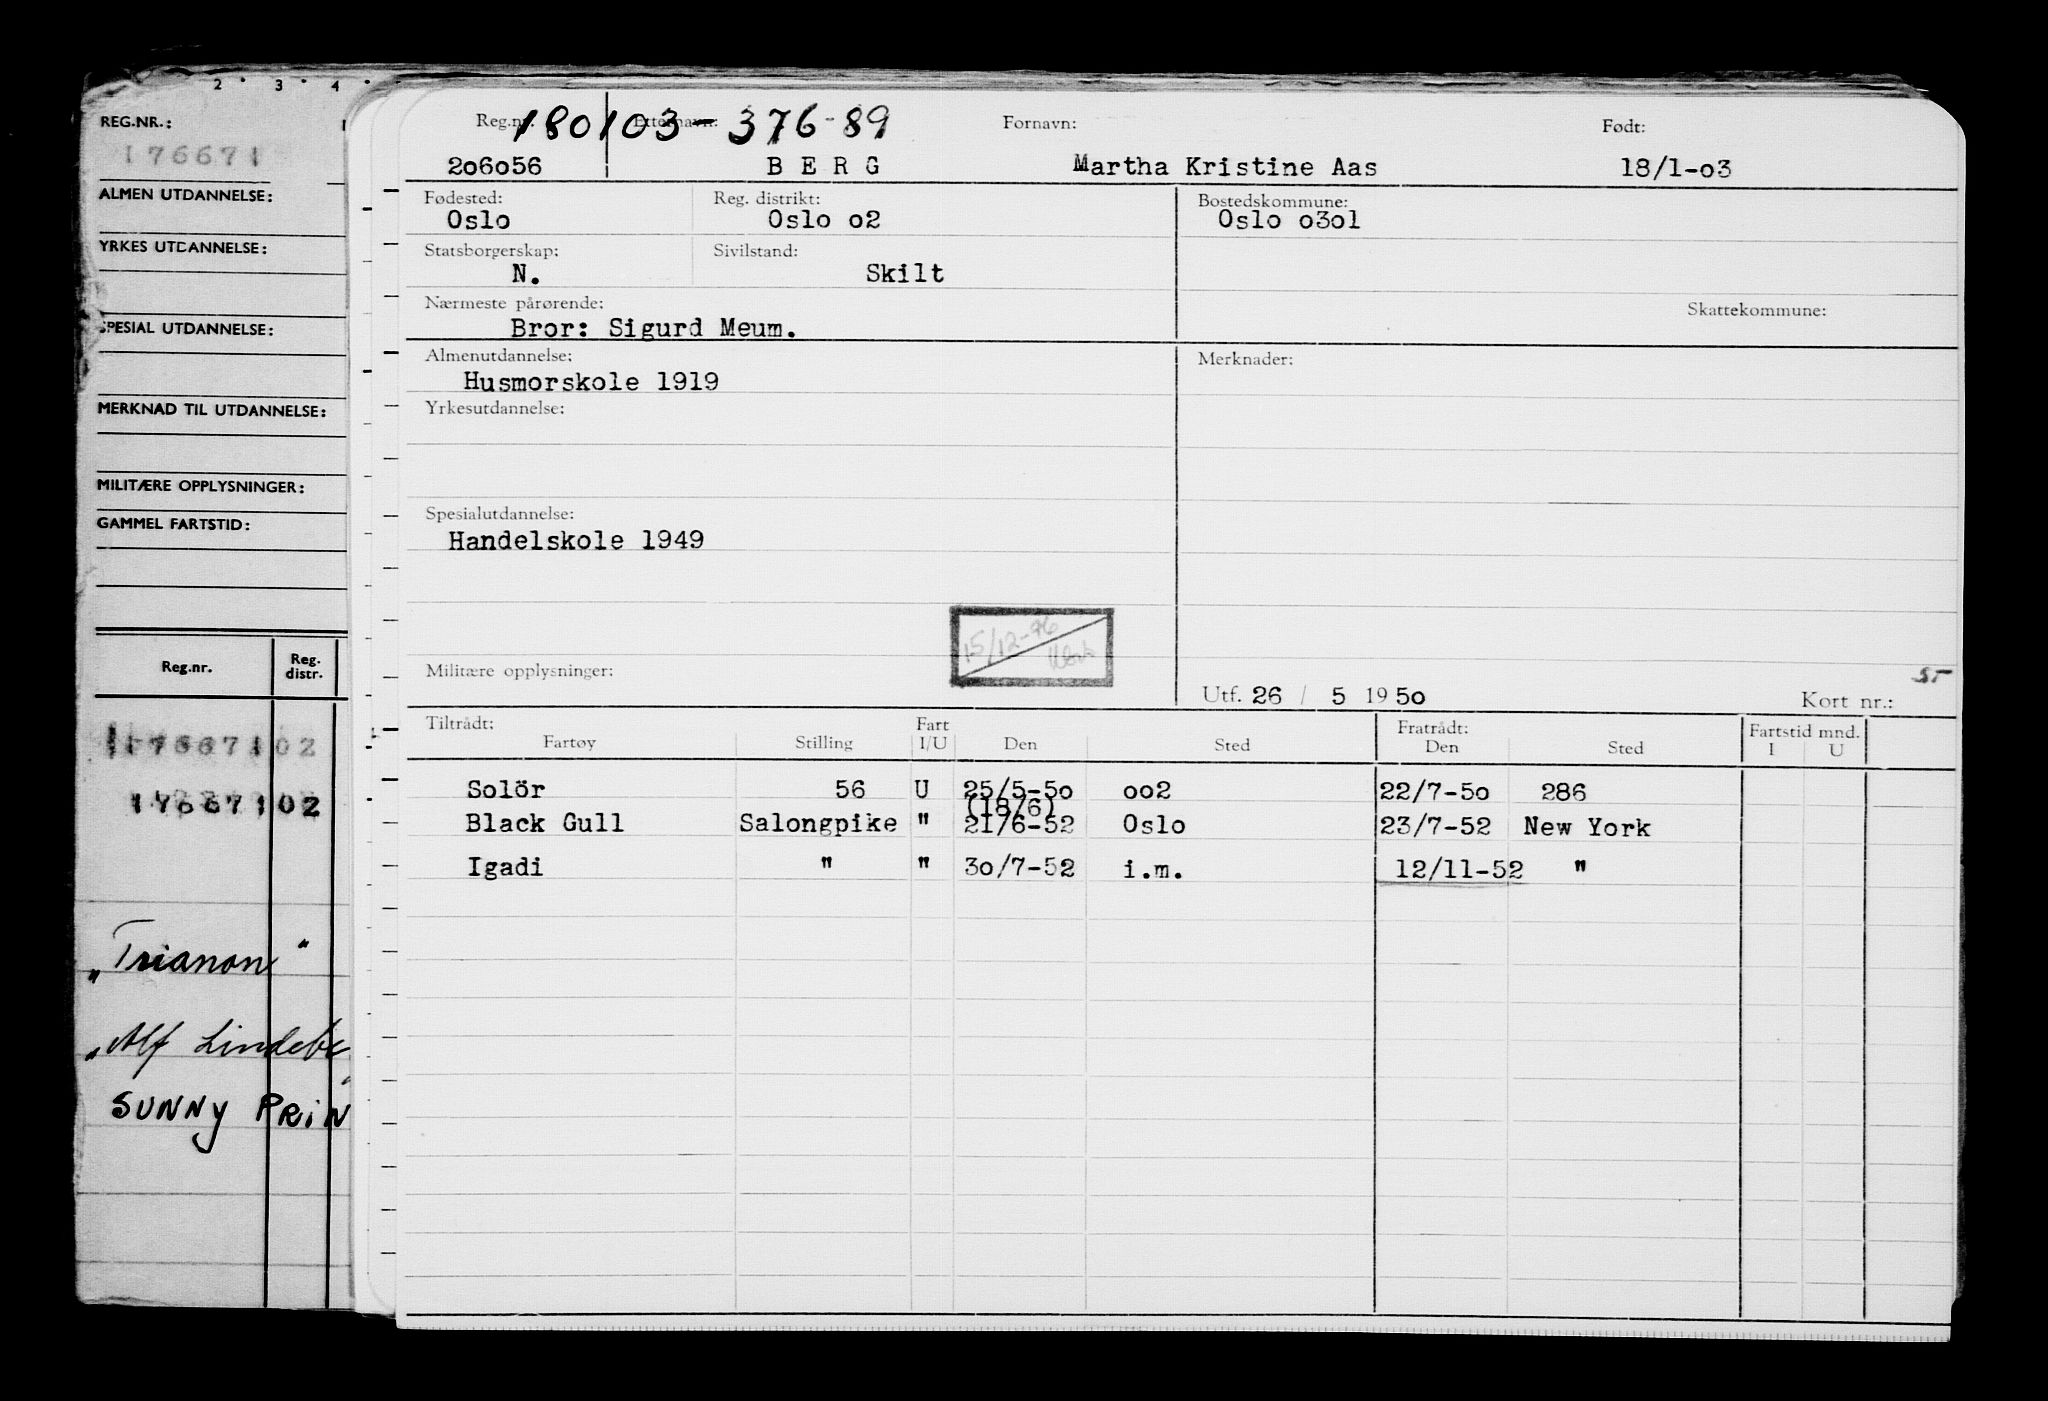 2 3 4
REG.NR.:
176671
ALMEN UTDANNELSE:
YRKES UTDANNELSE:
SPESIAL UTDANNELSE:
MERKNAD TIL UTDANNELSE:
MILITÆRE OPPLYSNINGER:
GAMMEL FARTSTID:
Reg.nr. Reg. distr.
176671 02
176671 02
„Trianon"
„Alf Lindebe
SUNNY PRIN
180103-376-89
Reg.nr. Etternavn: Fornavn: Født:
206056 BERG Martha Kristine Aas 18/1-03
Fødested: Reg. distrikt: Bostedskommune:
Oslo Oslo o2 Oslo o3ol
Statsborgerskap: Sivilstand:
N. Skilt
Nærmeste pårørende: Skattekommune:
Bror: Sigurd Meum.
Almenutdannelse: Merknader:
Husmorskole 1919
Yrkesutdannelse:
Spesialutdannelse:
Handelskole 1949
15/12-76
Militære opplysninger:
Utf. 26 / 5 1950 Kort nr.:
Tiltrådt: Fart Fratrådt: Fartstid mnd.
Fartøy Stilling I/U Den Sted Den Sted I U
Solör 56 U 25/5-50 oo2 22/7-50 286
(18/6)
Black Gull Salongpike " 21/6-52 Oslo 23/7-52 New York
Igadi " " 30/7-52 i.m. 12/11-52 "